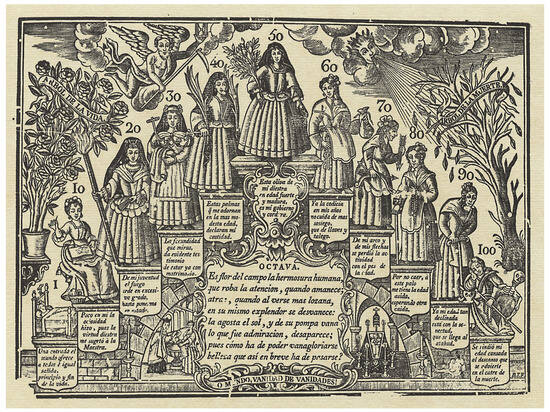 ARBOL DE LA VIDA
ARBOL DE LA MUERTE
1
10
20
30
40
50
60
70
80
90
100
Una entrada el
mundo ofrece
a todo é igual
salida,
principio y fin
de la vida.
Poco en mi la
ociosidad
hizo, pues la
virtud diestra
me sugirió la
Maestra.
De mi juventud
el fuego
está en excesi-
vo grado,
La fecundidad
que miras,
da evidente tes
timonio
de estar ya con
matrimonio.
Estas palmas
q me adornen
en la mas mo-
desta edad,
declaran mi
castidad.
Esta oliva de
mi diestra
en edad fuerte
y madura,
es mi gobierno
y cordura.
Ya la codicia
en mis años
necesita de mas
sosiego,
que de llaves y
talego.
De mi arco y
de mis flechas
se perdió la ac-
tividad
con el peso de
la edad.
Por no caer, á este
palo
me tiene la edad
asida,
esperando otra
caida.
Ya mi edad tan
declinada
está con la se-
nectud,
que se llega al
ataúd.
Se rindió mi
edad cansada
el descanso que
se advierte
en el catre de
la muerte.
OCTAVA.
Es flor del campo la hermosura humana,
que roba la atencion, quando amanece
atra:, quando al verse mas lozana,
en su mismo explendor se desvanece:
la agosta el sol, y de su pompa vana
lo que fue admiracion, desaparece;
pues cómo ha de poder vanagloriarse
belleza que asi en breve ha de pesarse?
O MUNDO, VANIDAD DE VANIDADES!